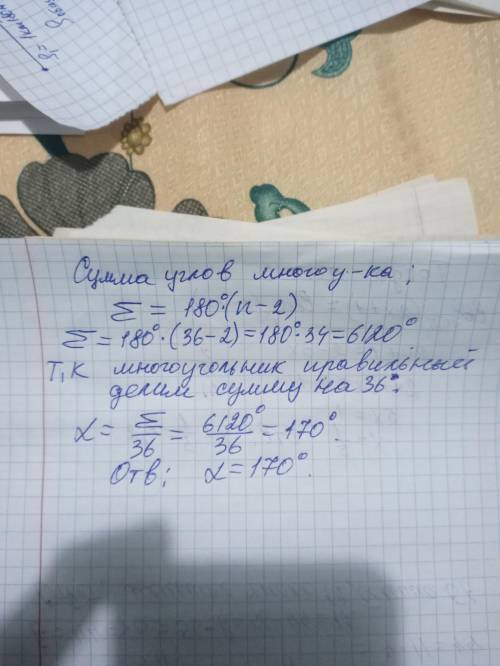 Сумма углов многоу-ка:
Σ = 180°(n-2)
Σ = 180°·(36-2)=180°·34=6120°.
Т,К многоугольник правильный
делим сумму на 36:
α = Σ/36 = 6120°/36 = 170°.
Отв: α=170°.